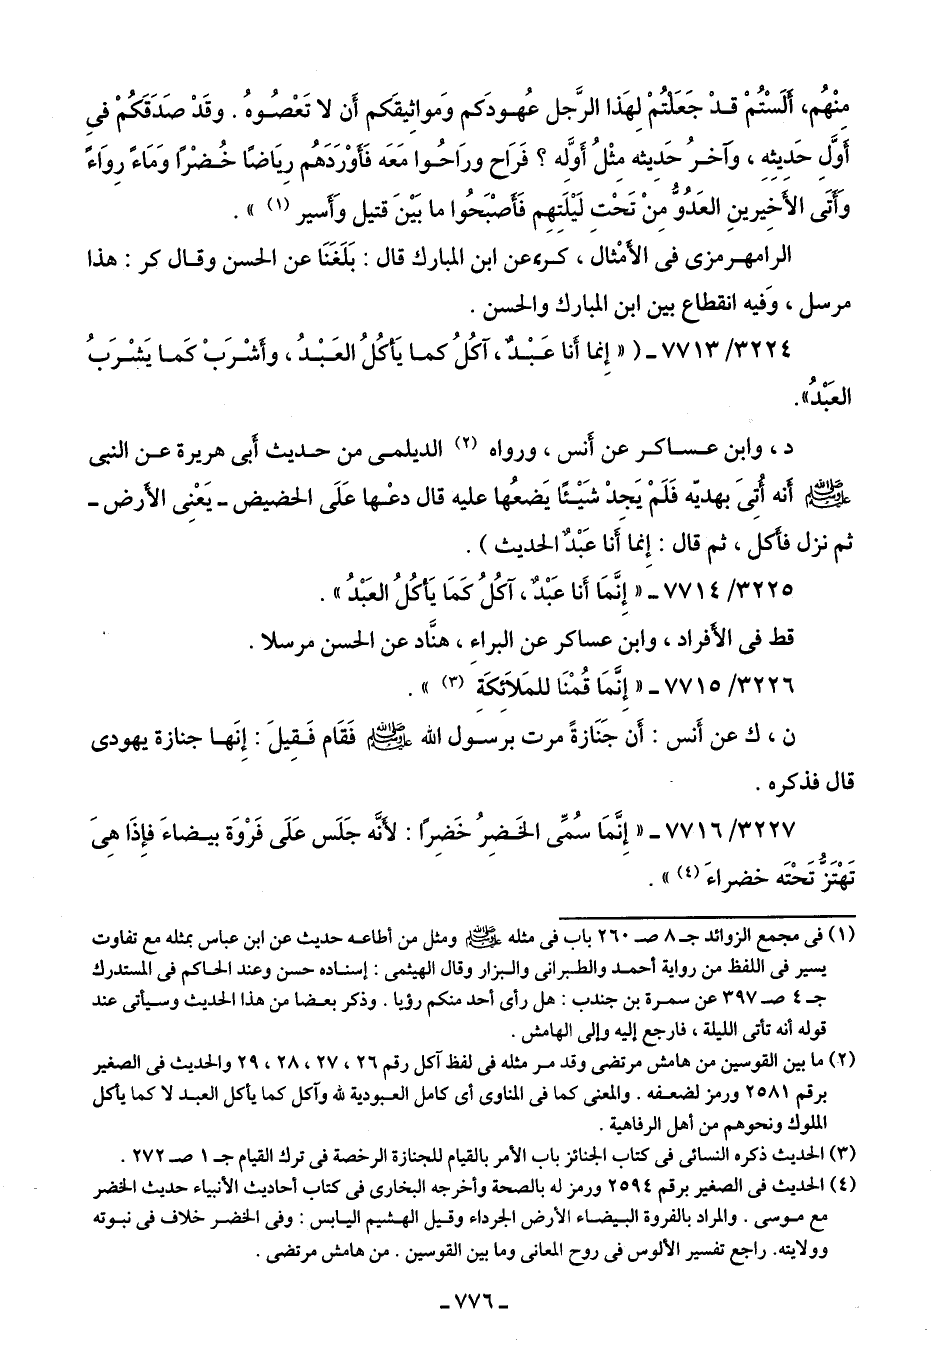 مِنْهُم، أَلَسْتُمْ قَدْ جَعَلْتُمْ لِهَذا الرَّجلِ عهُودَكم وَمواثيقَكم أن لا تَعْصُوهُ . وقَدْ صَدَقَكُمْ فِي
أوَّلِ حَدِيثِهِ ، وآخرُ حَدِيثِه مثْلُ أوَّله ؟ فَرَاحِ وراحُوا مَعَه فَأَوْرَدَهُم رِيَاضًا خُضْرًا وَمَاءً رِواءً
وأَتَى الأخِيرِينِ العَدُوُّ مِنْ تَحْتِ لَيْلَتِهِم فَأَصْبَحُوا ما بَيْنَ قتيلٍ وأَسير (١) » .
الرامهرمزى فى الأمْثال ، كر عن ابن المبارك قال : بَلَغَنَا عن الحسن وقال كر : هذا
مرسل ، وَفيه انقطاع بين ابن المبارك والحسن .
٧٧١٣/٣٢٢٤ - ( « إنما أنا عَبْدٌ، آكُلُ كما يأكُلُ العَبْدُ ، وأشْرَبُ كما يَشْرَبُ
العَبْدُ».
د ، وابن عساكر عن أنس ، ورواه (٢) الديلمى من حديث أبى هريرة عن النبى
ﷺ أنه أُتىَ بهديّه فَلَمْ يَجِدْ شَيْئًا يَضعُها عليه قال دعْها عَلَى الحضيض - يَعْنِى الأرض -
ثم نزل فأكل ، ثم قال : إنما أنا عَبْدٌ الحديث ) .
٧٧١٤/٣٢٢٥ - « إِنَّمَا أنا عَبْدٌ، آكُلُ كَمَا يَأكُلُ العَبْدُ » .
قط فى الأفراد ، وابن عساكر عن البراء ، هنَّاد عن الحسن مرسلا .
٧٧١٥/٣٢٢٦ - « إِنَّمَا قُمْنَا للمَلَائِكَة (٣) » .
ن ، ك عن أنس : أن جَنَازةً مرت برسول الله ﷺ فَقَام فَقِيلَ : إِنَها جنازة يهودى
قال فذكره .
٧٧١٦/٣٢٢٧ - « إِنَّمَا سُمِّى الخَضِرُ خَضِرًا : لأنَّه جَلَس عَلَى فَرْوَة بيضاءَ فإذَا هِىَ
تَهْتَزُّ تَحْتَه خضراءَ (٤) » .
(١) فى مجمع الزوائد جـ ٨ صـ ٢٦٠ باب فى مثله ﷺ ومثل من أطاعه حديث عن ابن عباس بمثله مع تفاوت
يسير فى اللفظ من رواية أحمد والطبرانى والبزار وقال الهيثمى : إسناده حسن وعند الحاكم فى المستدرك
جـ ٤ صـ ٣٩٧ عن سمرة بن جندب : هل رأى أحد منكم رؤيا . وذكر بعضا من هذا الحديث وسيأتى عند
قوله أنه تأتى الليلة ، فارجع إليه وإلى الهامش .
(٢) ما بين القوسين من هامش مرتضى وقد مر مثله فى لفظ آكل رقم ٢٦ ، ٢٧ ، ٢٨ ، ٢٩ والحديث فى الصغير
برقم ٢٥٨١ ورمز لضعفه . والمعنى كما فى المناوى أى كامل العبودية لله وآكل كما يأكل العبد لا كما يأكل
الملوك ونحوهم من أهل الرفاهية .
(٣) الحديث ذكره النسائى فى كتاب الجنائز باب الأمر بالقيام للجنازة الرخصة فى ترك القيام جـ ١ صـ ٢٧٢ .
(٤) الحديث فى الصغير برقم ٢٥٩٤ ورمز له بالصحة وأخرجه البخارى فى كتاب أحاديث الأنبياء حديث الخضر
مع موسى . والمراد بالفروة البيضاء الأرض الجرداء وقيل الهشيم اليابس : وفى الخضر خلاف فى نبوته
وولايته. راجع تفسير الألوس فى روح المعانى وما بين القوسين . من هامش مرتضى .
- ٧٧٦ -